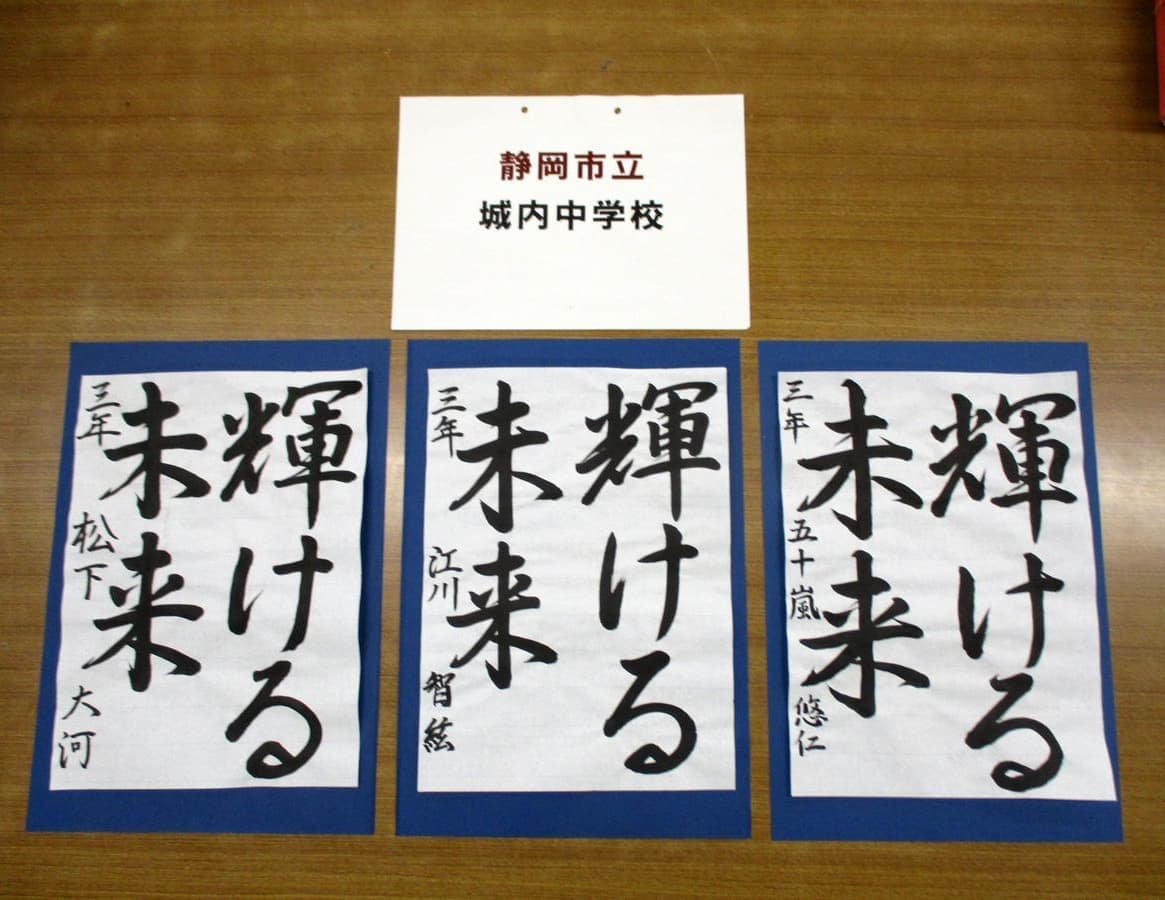 静岡市立
城内中学校
輝ける
未来
三年 松下 大河
輝ける
未来
三年 江川 智絃
輝ける
未来
三年 五十嵐 悠仁